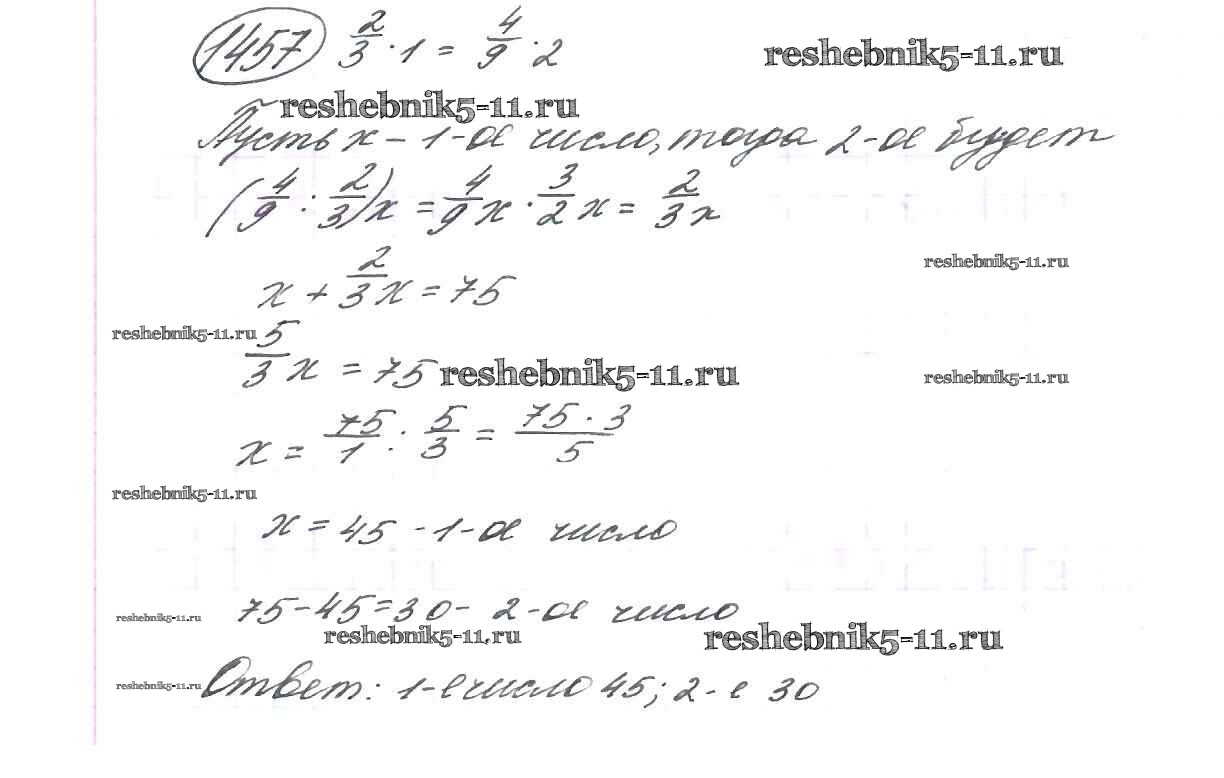 1457 2/3 · 1 = 4/9 · 2 reshebnik5-11.ru
reshebnik5-11.ru
Пусть x - 1-ое число, тогда 2-ое будет
(4/9 : 2/3)x = 4/9 x · 3/2 x = 2/3 x
reshebnik5-11.ru
x + 2/3 x = 75
reshebnik5-11.ru
5/3 x = 75 reshebnik5-11.ru reshebnik5-11.ru
x = 75/1 : 5/3 = 75 · 3/5
reshebnik5-11.ru
x = 45 - 1-ое число
75-45=30- 2-ое число
reshebnik5-11.ru reshebnik5-11.ru reshebnik5-11.ru
reshebnik5-11.ru Ответ: 1-е число 45; 2-е 30